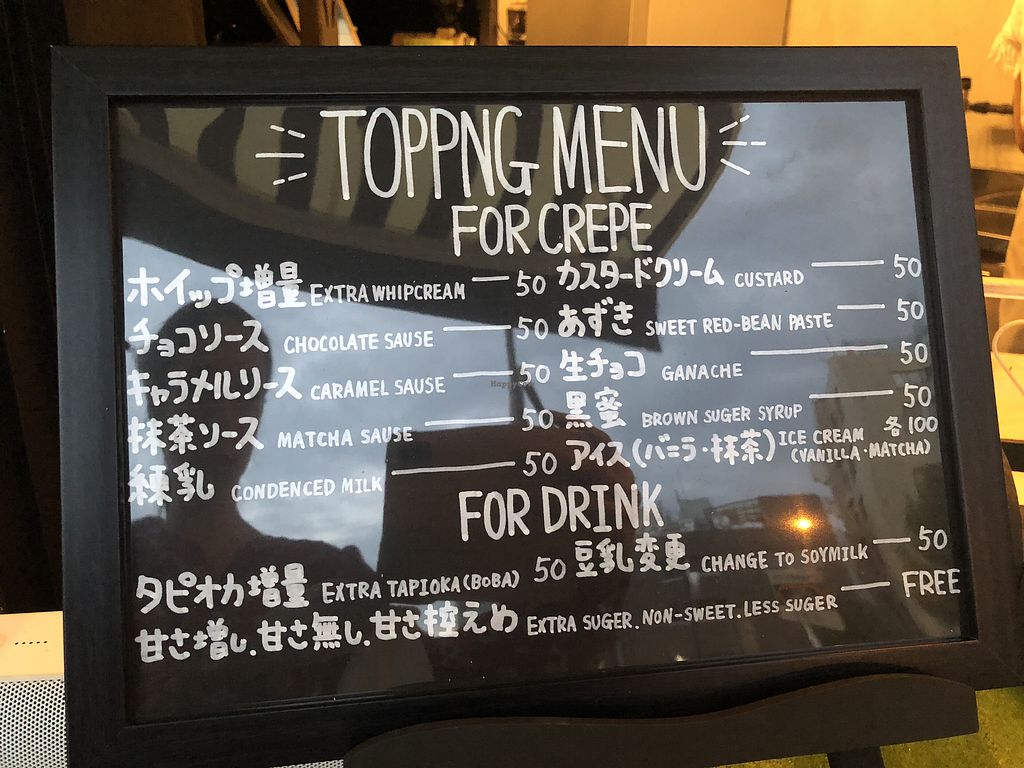 TOPPNG MENU
FOR CREPE
ホイップ増量 EXTRA WHIPCREAM — 50
チョコソース CHOCOLATE SAUSE — 50
キャラメルソース CARAMEL SAUSE — 50
抹茶ソース MATCHA SAUSE — 50
練乳 CONDENCED MILK — 50
カスタードクリーム CUSTARD — 50
あずき SWEET RED-BEAN PASTE — 50
生チョコ GANACHE — 50
黒蜜 BROWN SUGER SYRUP — 50
アイス(バニラ・抹茶) ICE CREAM 各100
(VANILLA・MATCHA)
FOR DRINK
タピオカ増量 EXTRA TAPIOKA(BOBA) 50
豆乳変更 CHANGE TO SOYMILK — 50
甘さ増し.甘さ無し.甘さ控えめ EXTRA SUGER.NON-SWEET.LESS SUGER — FREE